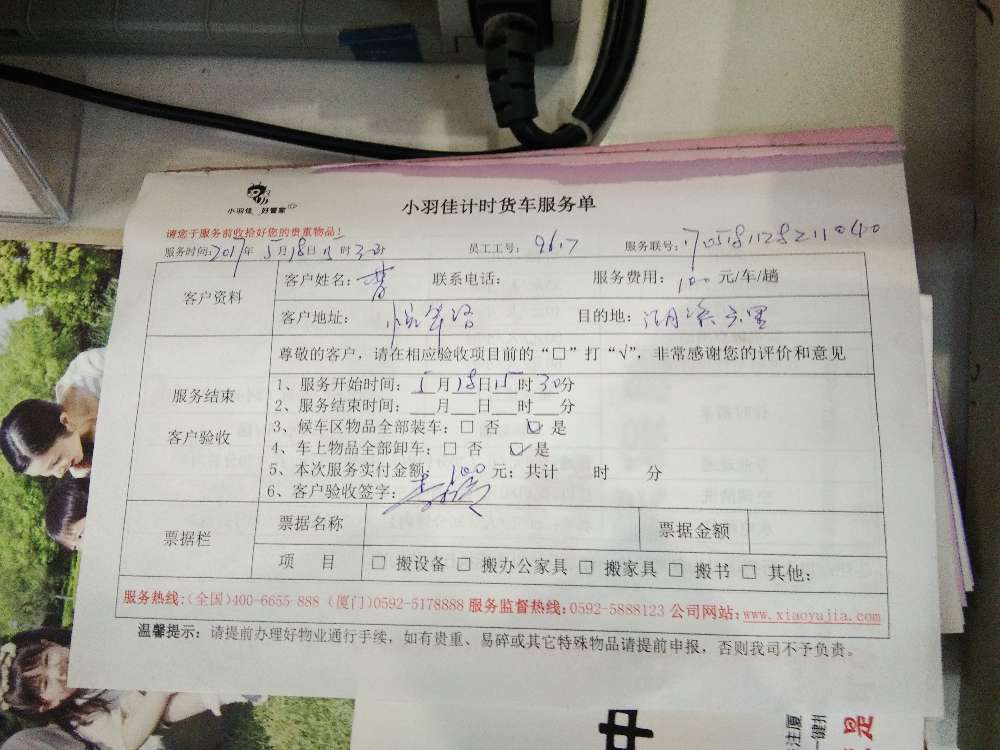 小羽佳 好管家
小羽佳计时货车服务单
请您于服务前收拾好您的贵重物品！
服务时间:2017年 5月18日 时30分 员工工号: 9617 服务联号: 7051811282110040
客户资料
客户姓名: 联系电话: 服务费用: 100 元/车/趟
客户地址: 目的地:
服务结束
客户验收
尊敬的客户，请在相应验收项目前的“□”打“√”，非常感谢您的评价和意见
1、服务开始时间: 5月18日15时30分
2、服务结束时间:___月___日___时___分
3、候车区物品全部装车: □ 否 ☑ 是
4、车上物品全部卸车: □ 否 ☑ 是
5、本次服务实付金额: 100 元; 共计 时 分
6、客户验收签字:
票据栏
票据名称 票据金额
项 目 □ 搬设备 □ 搬办公家具 □ 搬家具 □ 搬书 □ 其他:
服务热线:(全国)400-6655-888 (厦门)0592-5178888 服务监督热线:0592-5888123 公司网站:www.xiaoyujia.com
温馨提示: 请提前办理好物业通行手续，如有贵重、易碎或其它特殊物品请提前申报，否则我司不予负责。
中
注厦
一健
是